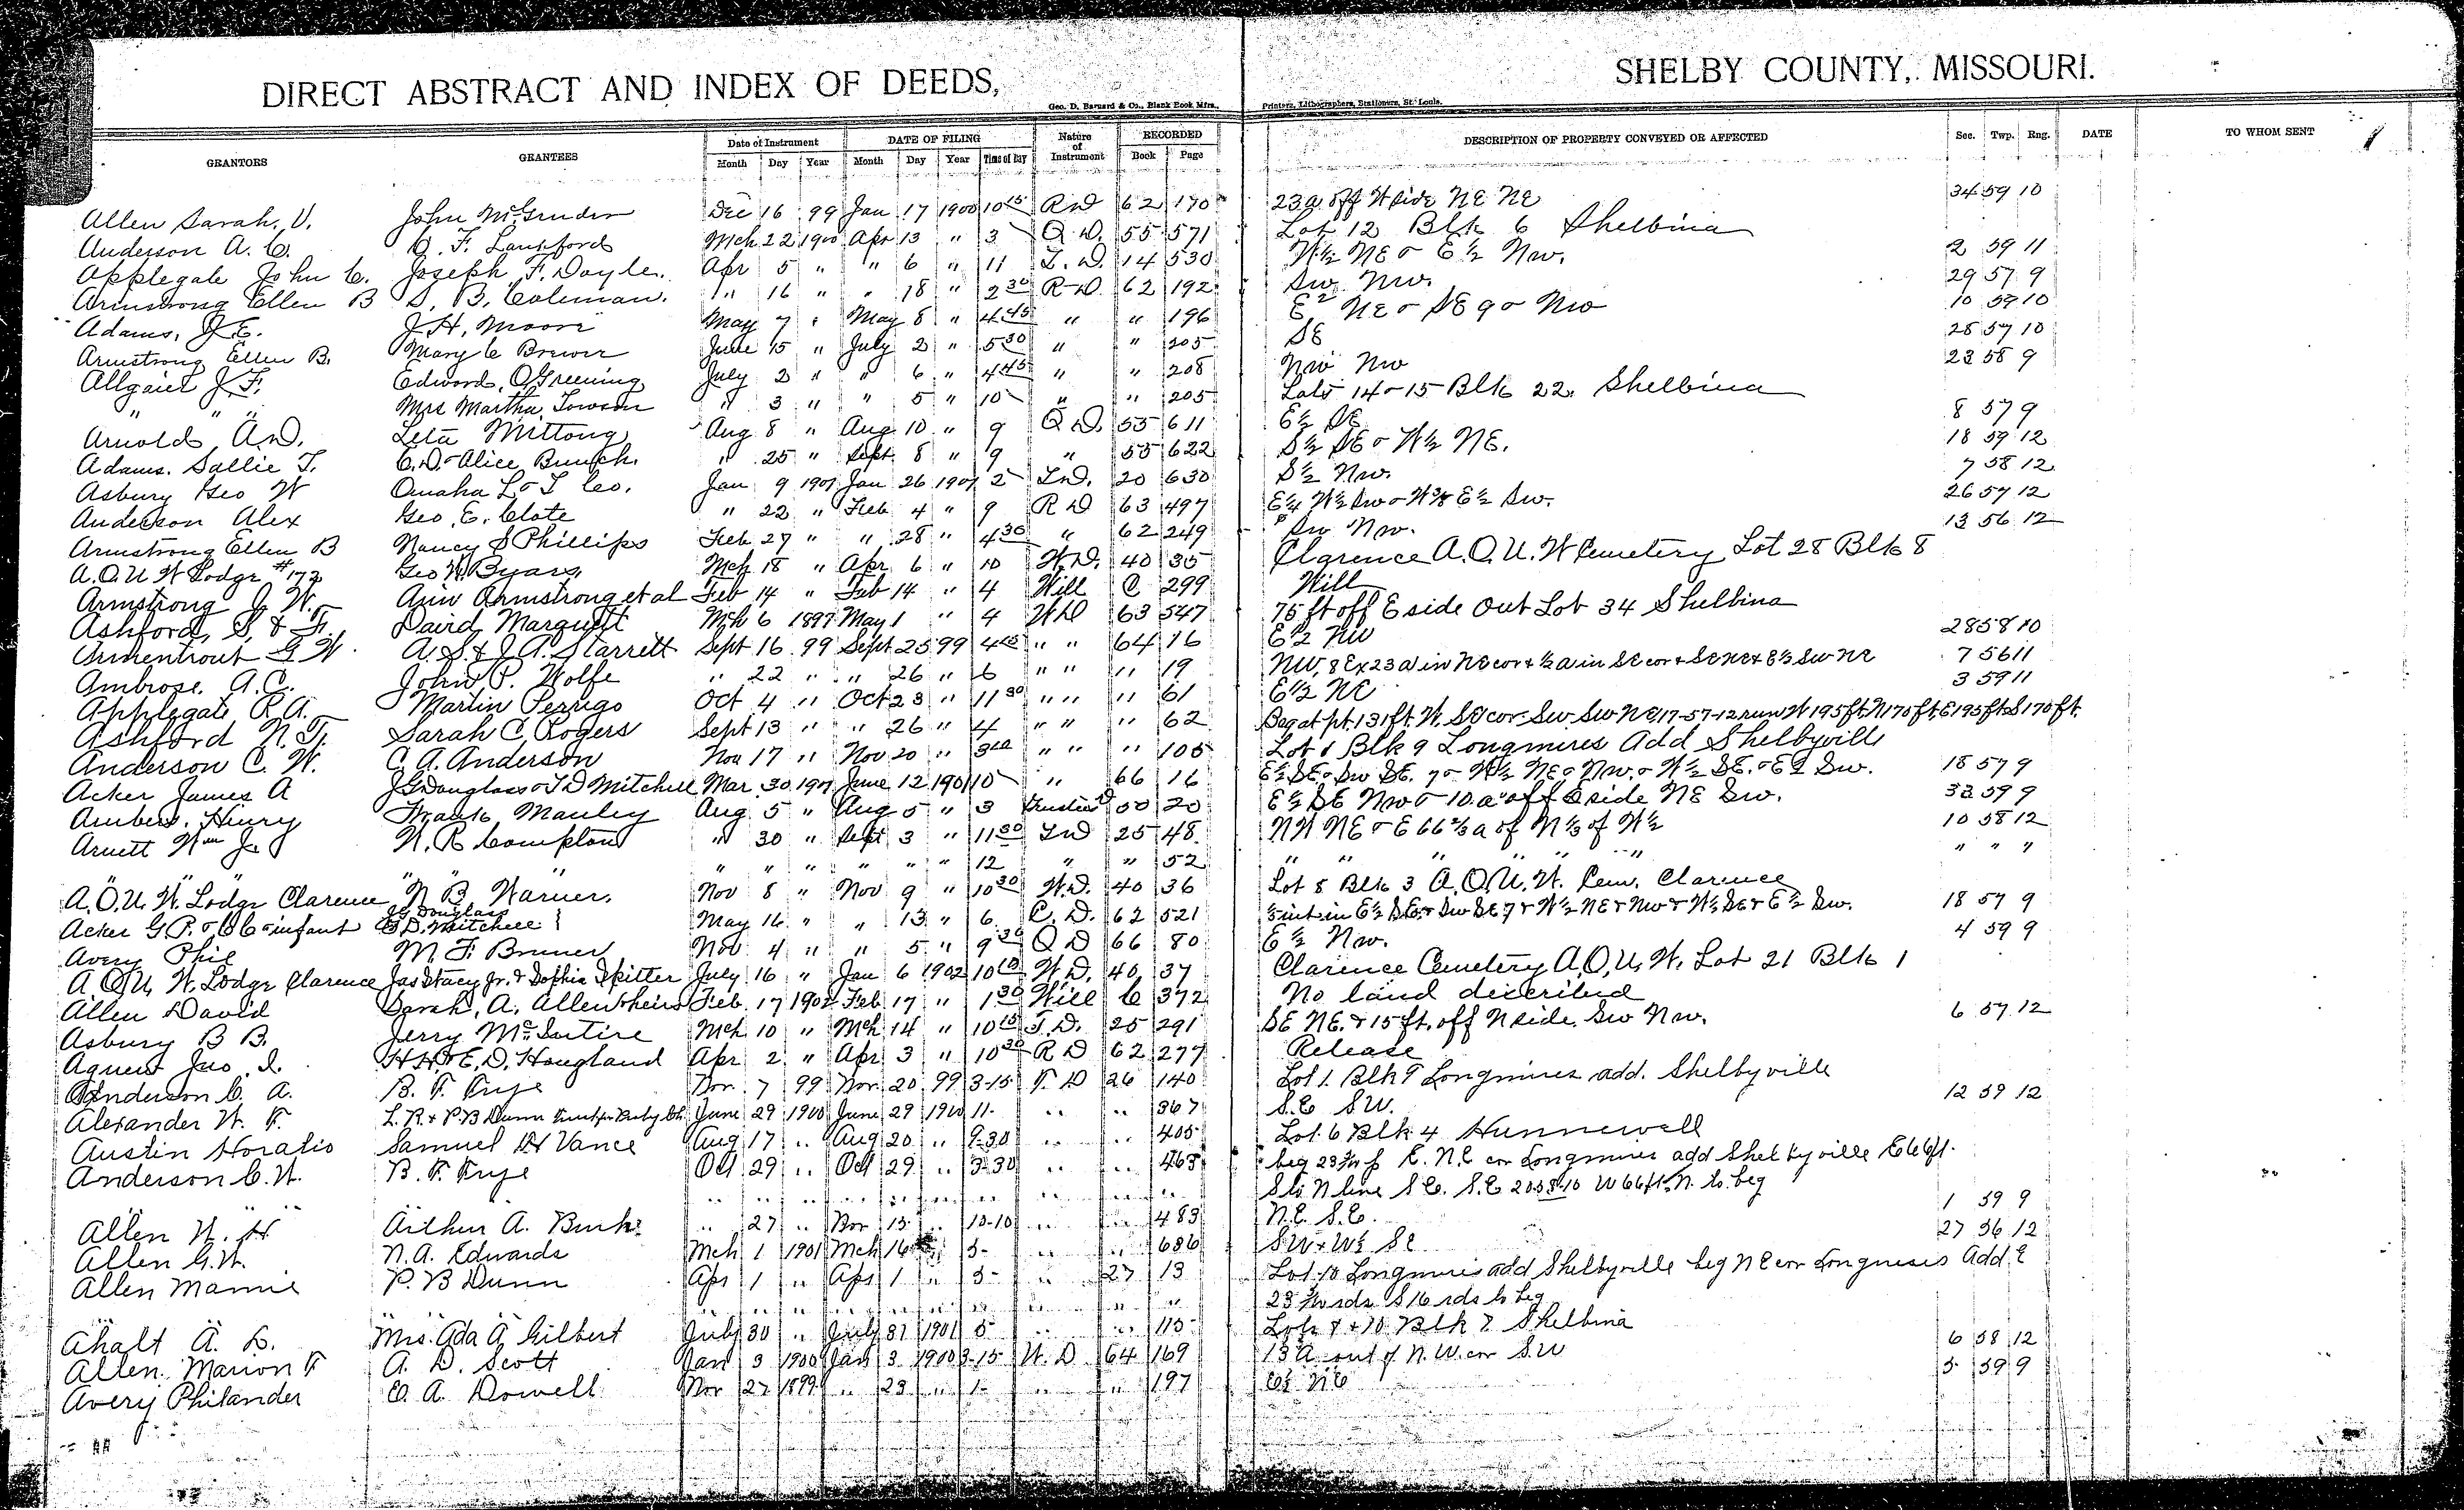 DIRECT ABSTRACT AND INDEX OF DEEDS, SHELBY COUNTY, MISSOURI.
Geo. D. Barnard & Co., Blank Book Mfrs., Printers, Lithographers, Stationers, St. Louis.
GRANTORS GRANTEES Date of Instrument DATE OF FILING Nature of Instrument RECORDED DESCRIPTION OF PROPERTY CONVEYED OR AFFECTED Sec. Twp. Rng. DATE TO WHOM SENT 1
Month Day Year Month Day Year Time of Day Book Page
Allen Sarah. V. John McGruder Dec 16 99 Jan 17 1900 10 15 R D 62 170 23 a off W side NE NE 34 59 10
Anderson A. C. F. Lankford Mch 22 1900 Apr 13 " 3 Q D. 55 571 Lot 12 Blk 6 Shelbina
Applegate John C. Joseph F. Doyle. Apr 5 " " 6 " 11 T. D. 14 530 W½ NE & E½ NW. 2 59 11
Armstrong Ellen B S. B. Coleman. " 16 " " 18 " 2 30 R D 62 192 SW NW. 29 57 9
Adams, J. E. J. H. Moore May 7 " May 8 " 4 45 " " 196 E½ NE & SE 9 & NW 10 59 10
Armstrong Ellen B. Mary C Brewer June 15 " July 2 " 5 30 " " 205 SE 28 57 10
Allgaier J F. Edward O Greening July 2 " " 6 " 4 45 " " 208 NW NW 23 58 9
" " " Mrs Martha Towson " 3 " " 5 " 10 " " 205 Lots 14 & 15 Blk 22. Shelbina
Arnold A D. Leta Mittong Aug 8 " Aug 10 " 9 Q D. 55 611 E½ SE 8 57 9
Adams. Sallie T. C. D. & Alice Bunch. " 25 " Sept 8 " 9 " 55 622 S½ SE & W½ NE. 18 59 12
Asbury Geo W Omaha L & T Co. Jan 9 1901 Jan 26 1901 2 T D. 20 630 S½ NW. 7 58 12
Anderson Alex Geo. E. Clote " 22 " Feb 4 " 9 R D 63 497 26 57 12
Armstrong Ellen B Nancy S Phillips Feb 27 " " 28 " 4 30 " 62 249 SW NW. 13 56 12
A.O.U W Lodge #172 Geo W. Byars Mch 18 " Apr 6 " 10 W. D. 40 35 Clarence A.O.U.W Cemetery Lot 28 Blk 8
Armstrong J. W. Ann Armstrong et al Feb 14 " Feb 14 " 4 Will C 299 Will
Ashford, S. & F. David Marquitt Mch 6 1897 May 1 " 4 W D 63 547 75 ft off E side Out Lot 34 Shelbina
Armentrout G W. A. S. & J. A. Starrett Sept 16 99 Sept 25 99 4 25 " " 64 16 E½ NW 28 58 10
Ambrose. A. C. John P. Wolfe " 22 " " 26 " 6 " " " 19 NW, 8 Ex 23 a in NE cor & ½ a in SE cor & SE NE & E½ SW NE 7 56 11
Applegate R. A. Martin Perrigo Oct 4 " Oct 23 " 11 30 " " " 61 E½ NE 3 59 11
Ashford N. T. Sarah C. Rogers Sept 13 " " 26 " 4 " " " 62 Beg at pt. 131 ft. W. SE cor. SW SW NE 17-57-12 run W 195 ft. N 170 ft. E 195 ft. S 170 ft.
Anderson C. W. C. A. Anderson Nov 17 " Nov 20 " " " " 105 Lot 1 Blk 9 Longmires Add Shelbyville
Acker James A J G Douglass & T D Mitchell Mar. 30 1901 June 12 1901 10 " 66 16 E½ SE & SW SE. 7 & W½ NE & NW. & W½ SE. & E½ SW. 18 57 9
Ambers. Henry Frank Manley Aug 5 " Aug 5 " 3 Trustee D 50 20 E½ SE NW & 10 a off E side NE SW. 32 59 9
Arnett Wm J. W. R Compton " 30 " Sept 3 " 11 30 T D 25 48 NW NE & E 66⅔ a of N⅓ of W½ 10 58 12
" " " " " " " " 12 " " 52 " " " " " " " "
A.O.U. W. Lodge Clarence N B. Warner. Nov 8 " Nov 9 " 10 30 W. D. 40 36 Lot 8 Blk 3 A.O.U.W. Cem. Clarence
Acker G. P. infant J G Douglass T. D. Mitchell May 16 " " 13 " 6 C. D. 62 521 int in E½ SE & SW SE 7 & W½ NE & NW & W½ SE & E½ SW. 18 57 9
Avery Phil M. F. Bruner Nov 4 " " 5 " 9 30 Q D 66 80 E½ NW. 4 59 9
A.O.U. W. Lodge Clarence Jas Stacy Jr. & Sophia Skitter July 16 " Jan 6 1902 10 10 W D. 40 37 Clarence Cemetery A.O.U.W. Lot 21 Blk 1
Allen David Sarah. A. Allen & heirs Feb. 17 1902 Feb 17 " 1 30 Will C 372 No land described
Asbury B B. Jerry McIntire Mch 10 " Mch 14 " 10 15 T. D. 25 291 SE NE. & 15 ft. off N side. SW NW. 6 57 12
Agnew Jno. I. H H. & E. D. Hougland Apr 2 " Apr 3 " 10 30 R D 62 277 Release
Anderson C. A. B. F. Frye Nov. 7 99 Nov. 20 99 3-15 T. D 26 140 Lot 1. Blk 9 Longmires add. Shelbyville
Alexander W. F. L. R. & P. B Dunn June 29 1900 June 29 1900 11- " " 367 S.E SW. 12 59 12
Austin Horatio Samuel H Vance Aug 17 " Aug 20 " 9-30 " " 405 Lot 6 Blk 4 Hunnewell
Anderson C. W. B. F. Frye Oct 29 " Oct 29 " 3-30 " " 463 beg 23 E. N.E cor Longmires add Shelbyville E 66 ft.
" " " " " " " " " " S to N line S E. S. E W 66 ft. N. to beg
Allen W. H Arthur A. Burk. " 27 " Nov 15 " 10-10 " " 483 N.E. S.E. 1 59 9
Allen G. W. N. A. Edwards Mch 1 1901 Mch 16 " 3- " " 686 SW & W½ SE 27 56 12
Allen Mamie P. B Dunn Apr 1 " Apr 1 " 3- " 27 13 Lot 10 Longmires add Shelbyville beg N E cor Longmires Add. E
" " " " " " " " " " 23 rds S 16 rds to beg
Ahalt A. D. Mrs. Ada A. Gilbert July 30 " July 31 1901 5 " " 115 Blk 7 Shelbina
Allen. Marion F A. D. Scott Jan 3 1900 Jan 3 1900 3-15 W. D 64 169 13 A out of N. W. cor SW 6 58 12
Avery Philander C. A. Dowell Nov 27 1899 " 23 " 1- " " 197 E½ NE 5 59 9